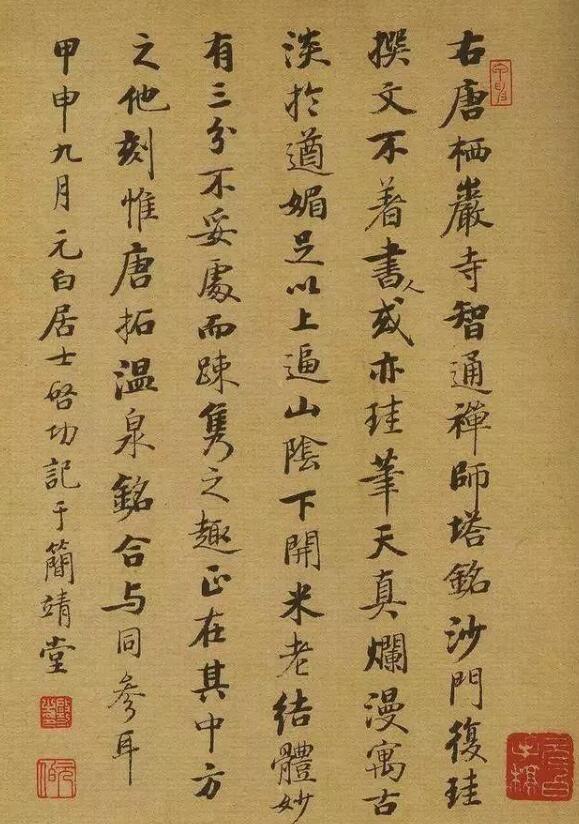 右唐栖巖寺智通禪師塔銘沙門復珪
撰文不著書人或亦珪筆天真爛漫寓古
淡於遒媚足以上逼山陰下開米老結體妙
有三分不妥處而踈雋之趣正在其中方
之他刻惟唐拓温泉銘合与同參耳
甲申九月元白居士啓功記于簡靖堂